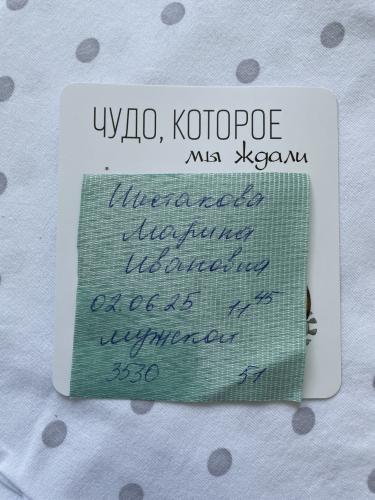 ЧУДО, КОТОРОЕ
мы ждали
Шестакова
Марина
Ивановна
02.06.25 11 45
мужской
3530 51